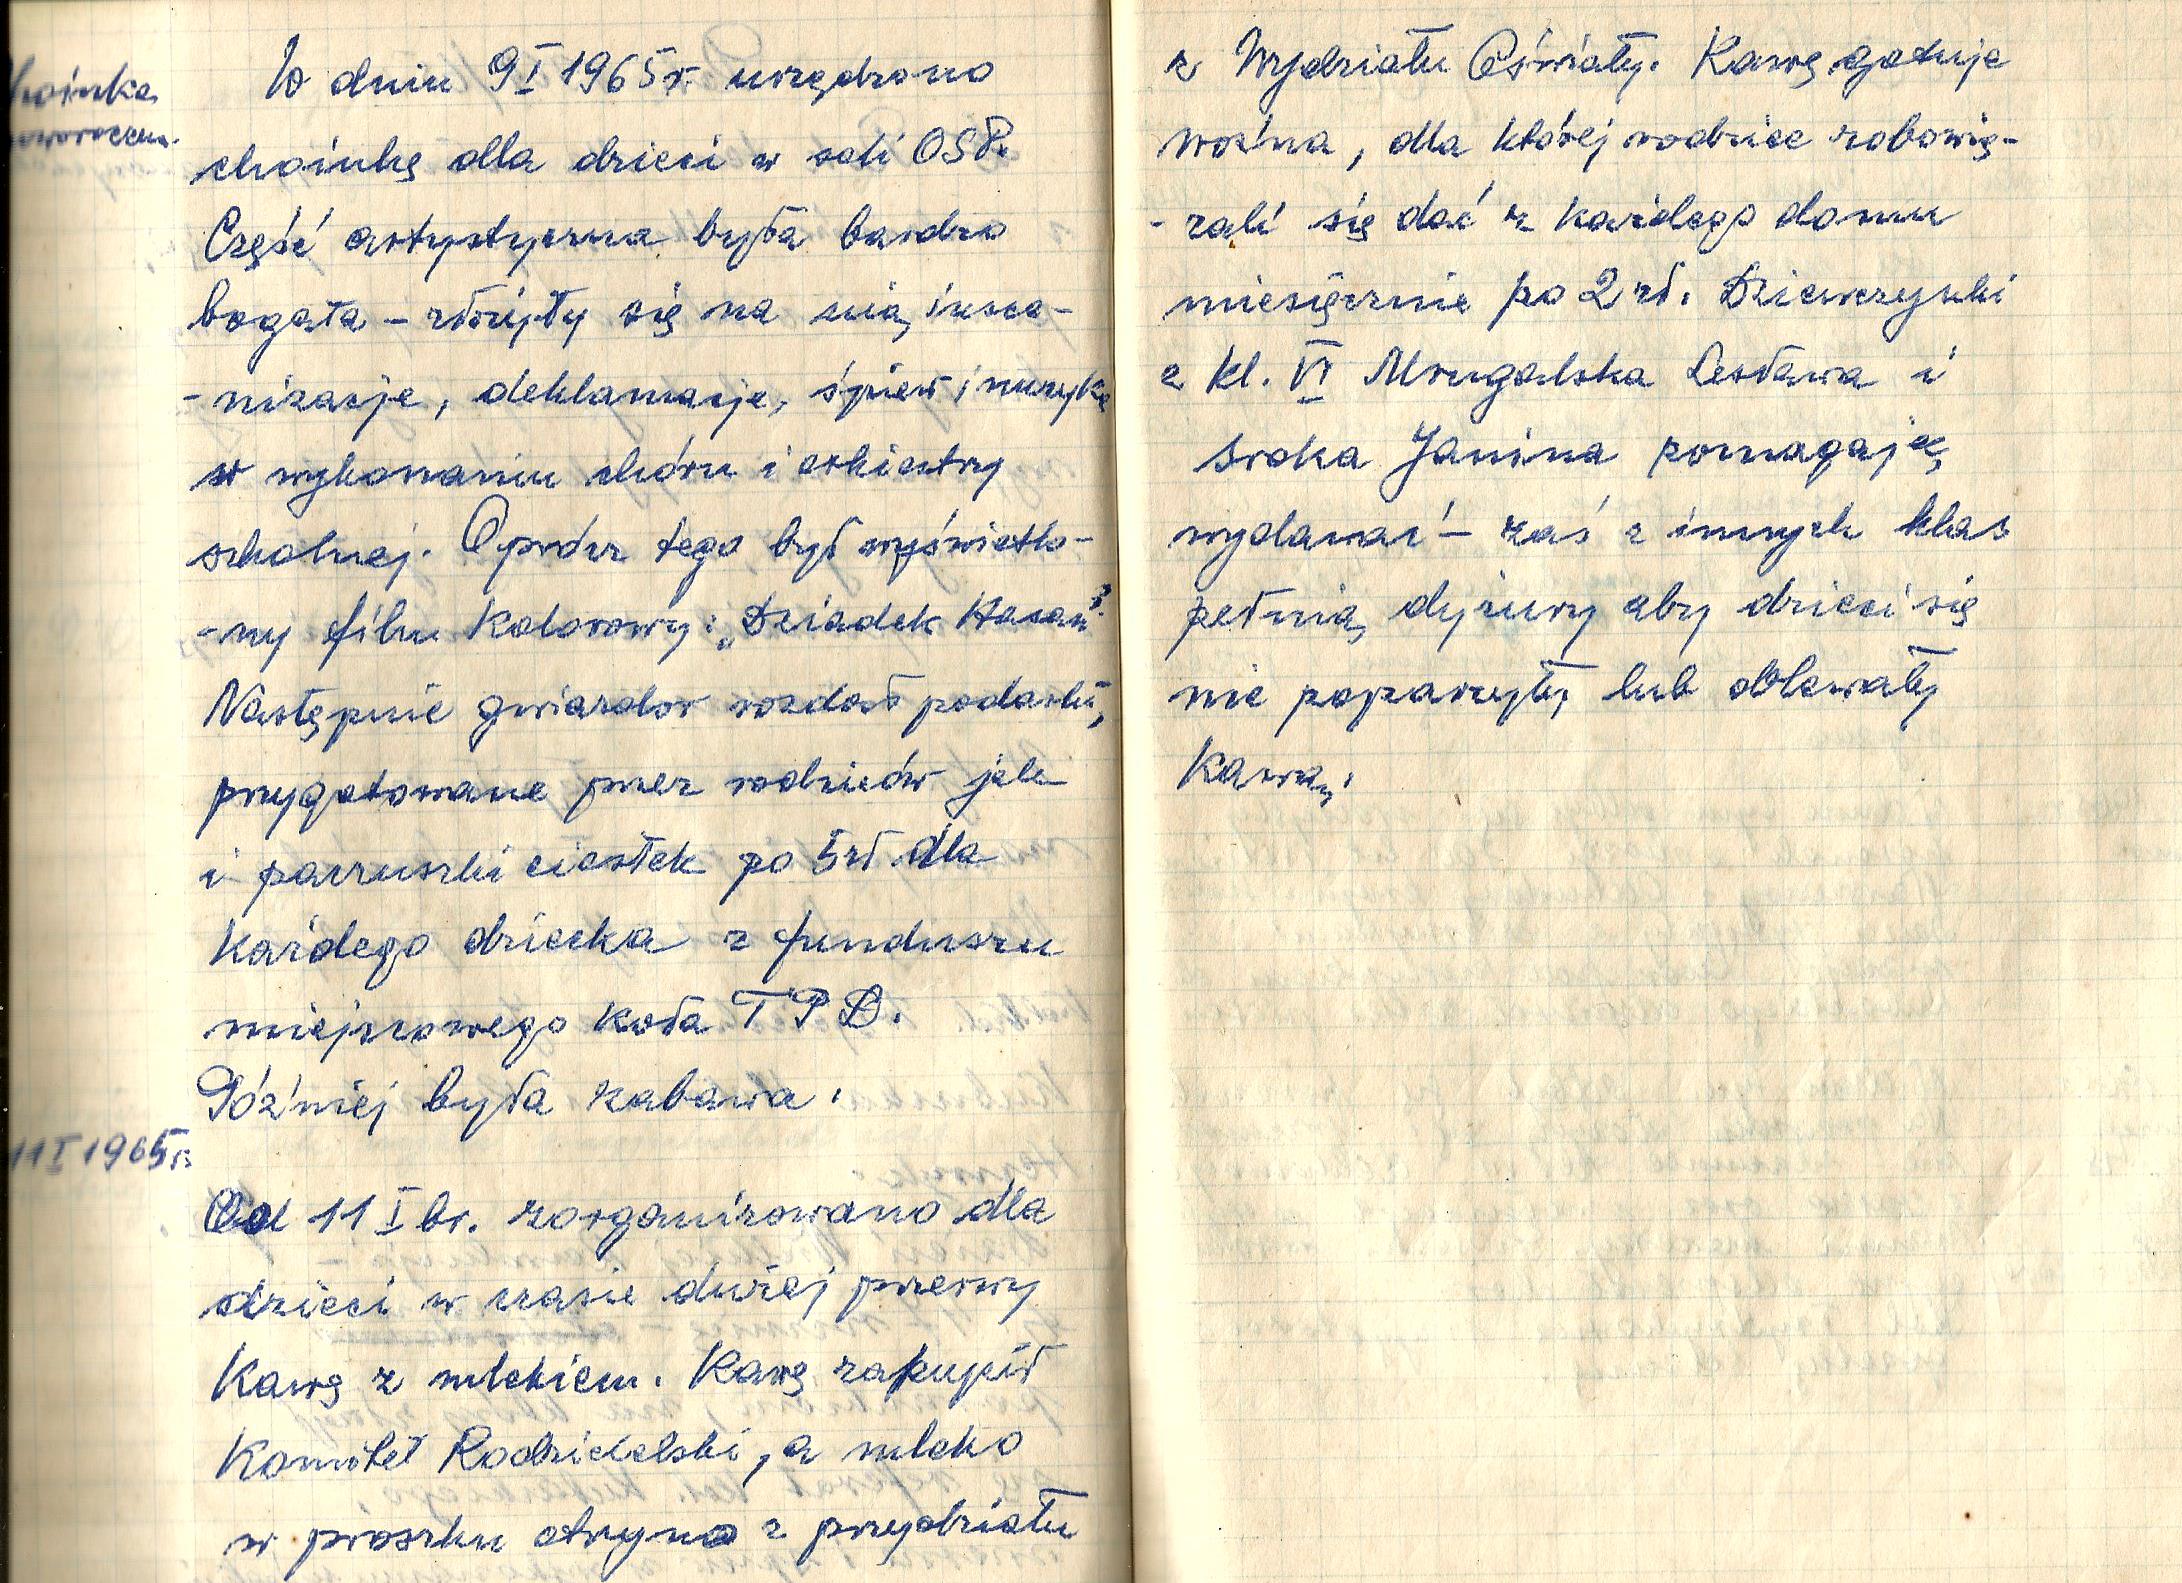 Choinka
noworoczna.
W dniu 9 I 1965 r. urządzono
choinkę dla dzieci w sali OSP.
Część artystyczna była bardzo
bogata – złożyły się na nią insce-
- nizacje, deklamacje, śpiew i muzyka
w wykonaniu chóru i orkiestry
szkolnej. Oprócz tego był wyświetlo-
- ny film kolorowy: „Dziadek Hasan"
Następnie gwiazdor rozdał podarki,
przygotowane przez rodziców jak
i paczuszki ciastek po 5 zł dla
każdego dziecka z funduszu
miejscowego koła T P D.
Później była zabawa.
11 I 1965 r.
Od 11 I br. zorganizowano dla
dzieci w czasie dużej przerwy
kawę z mlekiem. Kawę zakupił
Komitet Rodzicielski, a mleko
w proszku otrzymo z przydziału
z Wydziału Oświaty. Kawę gotuje
woźna, dla której rodzice zobowią-
- zali się dać z każdego domu
miesięcznie po 2 zł. Dziewczynki
z kl. VI Mrugalska Lesława i
Sroka Janina pomagają
wydawać – zaś z innych klas
pełnią dyżury aby dzieci się
nie poparzyły lub oblewały
kawą.